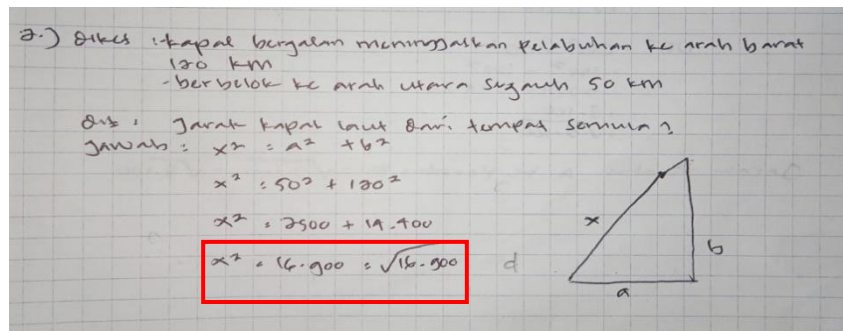 2.) Dikes : kapal bergalan meninggalkan pelabuhan ke arah barat
120 km
- berbelok ke arah utara sugauh 50 km
Dit : Jarak kapal laut dari tempat semula ?
Jawab : x² = a² + b²
x² = 50² + 120²
x² = 2500 + 14.400
x² = 16.900 = √16.900 d
x
b
a